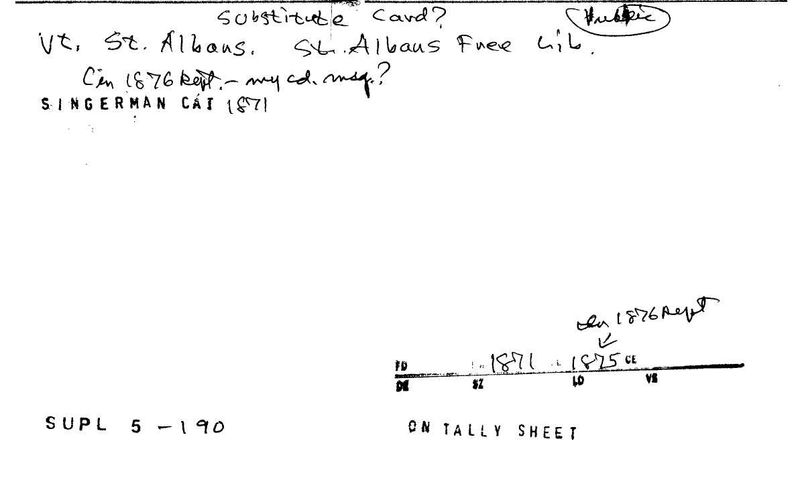 Substitute Card? Public
Vt. St. Albans. St. Albans Free Lib.
(in 1876 Rept. - my cd. msg.?
SINGERMAN CAT 1871
in 1876 Rept
FD 1871 1875 CE
DE SZ LD VS
SUPL 5-190
ON TALLY SHEET